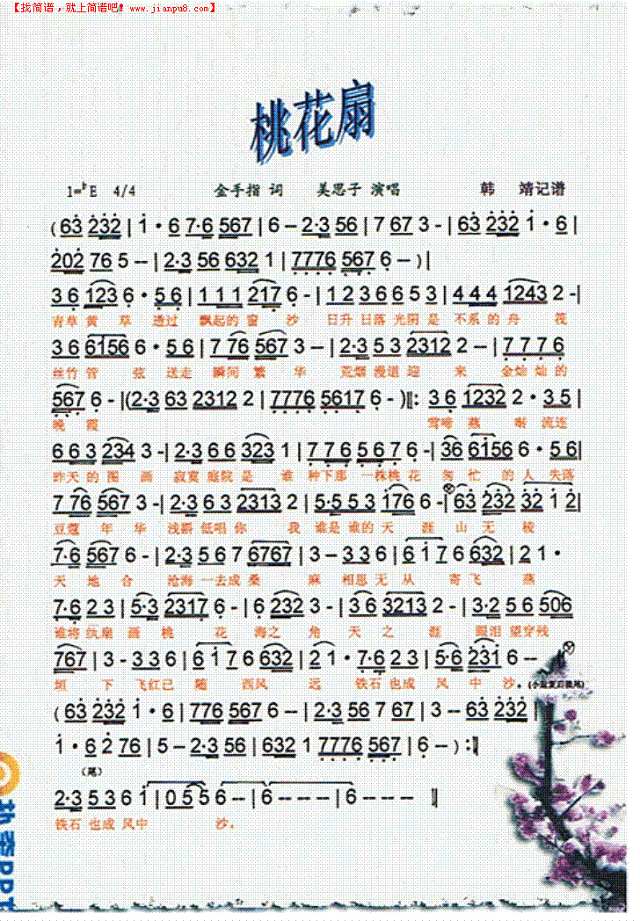 【找简谱，就上简谱吧! www.jianpu8.com】
桃花扇
1=♭E 4/4 金手指 词 美思子 演唱 韩 靖记谱
( 63 232 | 1 · 6 7·6 567 | 6 – 2·3 56 | 7 67 3 - | 63 232 1 · 6 |
202 76 5 -- | 2·3 56 632 1 | 7776 567 6 -- ) |
3 6 123 6 · 5 6 | 1 1 1 217 6 - | 1 2 3 6 6 5 3 | 4 4 4 1243 2 - |
青草 黄 草 透过 飘起的 窗 沙 日升 日落 光阴 是 不系 的 舟 筏
3 6 6156 6 · 5 6 | 7 76 567 3 -- | 2·3 5 3 2312 2 -- | 7 7 7 6
丝竹 管 弦 送走 瞬间 繁 华 荒烟 漫道 迎 来 金灿 灿的
567 6 - |(2·3 63 2312 2 | 7776 5617 6 - ) |: 3 6 1232 2 · 3 5 |
晚 霞 莺啼 燕 啭 流连
6 6 3 234 3 - | 2·3 6 6 323 1 | 7 7 6 5 67 6 - | 36 6156 6 · 5 6 |
昨天 的 图 画 寂寞 庭院 是 谁 种下那 一株桃 花 匆 忙 的 人 失落
7 76 567 3 - | 2·3 6 3 2313 2 | 5·5 5 3 176 6 - | 63 232 32 1 2 |
豆蔻 年 华 浅斟 低唱 你 我 谁是 谁的 天 涯 山 无 棱
7·6 567 6 - | 2·3 5 67 6767 | 3 – 3 3 6 | 6 1 7 6 632 | 2 1 ·
天 地 合 沧海 一去成 桑 麻 相思 无 从 寄 飞 燕
7·6 2 3 | 5·3 2317 6 - | 6 232 3 - | 3 6 3213 2 - | 3·2 5 6 506
谁将 纨扇 画 桃 花 海之 角 天 之 涯 眼泪 望穿残
767 | 3 - 3 3 6 | 6 1 7 6 632 | 2 1 · 7·6 2 3 | 5·6 2 3 1 6 --
垣 下 飞红已 随 西风 远 铁石 也成 风 中 沙。
( 63 232 1 · 6 | 7·6 567 6 -- | 2·3 56 7 67 | 3 -- 63 232 |
1 · 6 2 76 | 5 – 2·3 56 | 632 1 7776 567 | 6 -- ) :‖
(尾)
2·3 5 3 6 1 | 0 5 5 6 -- | 6 ---- | 6 ---- ‖
铁石 也成 风中 沙。